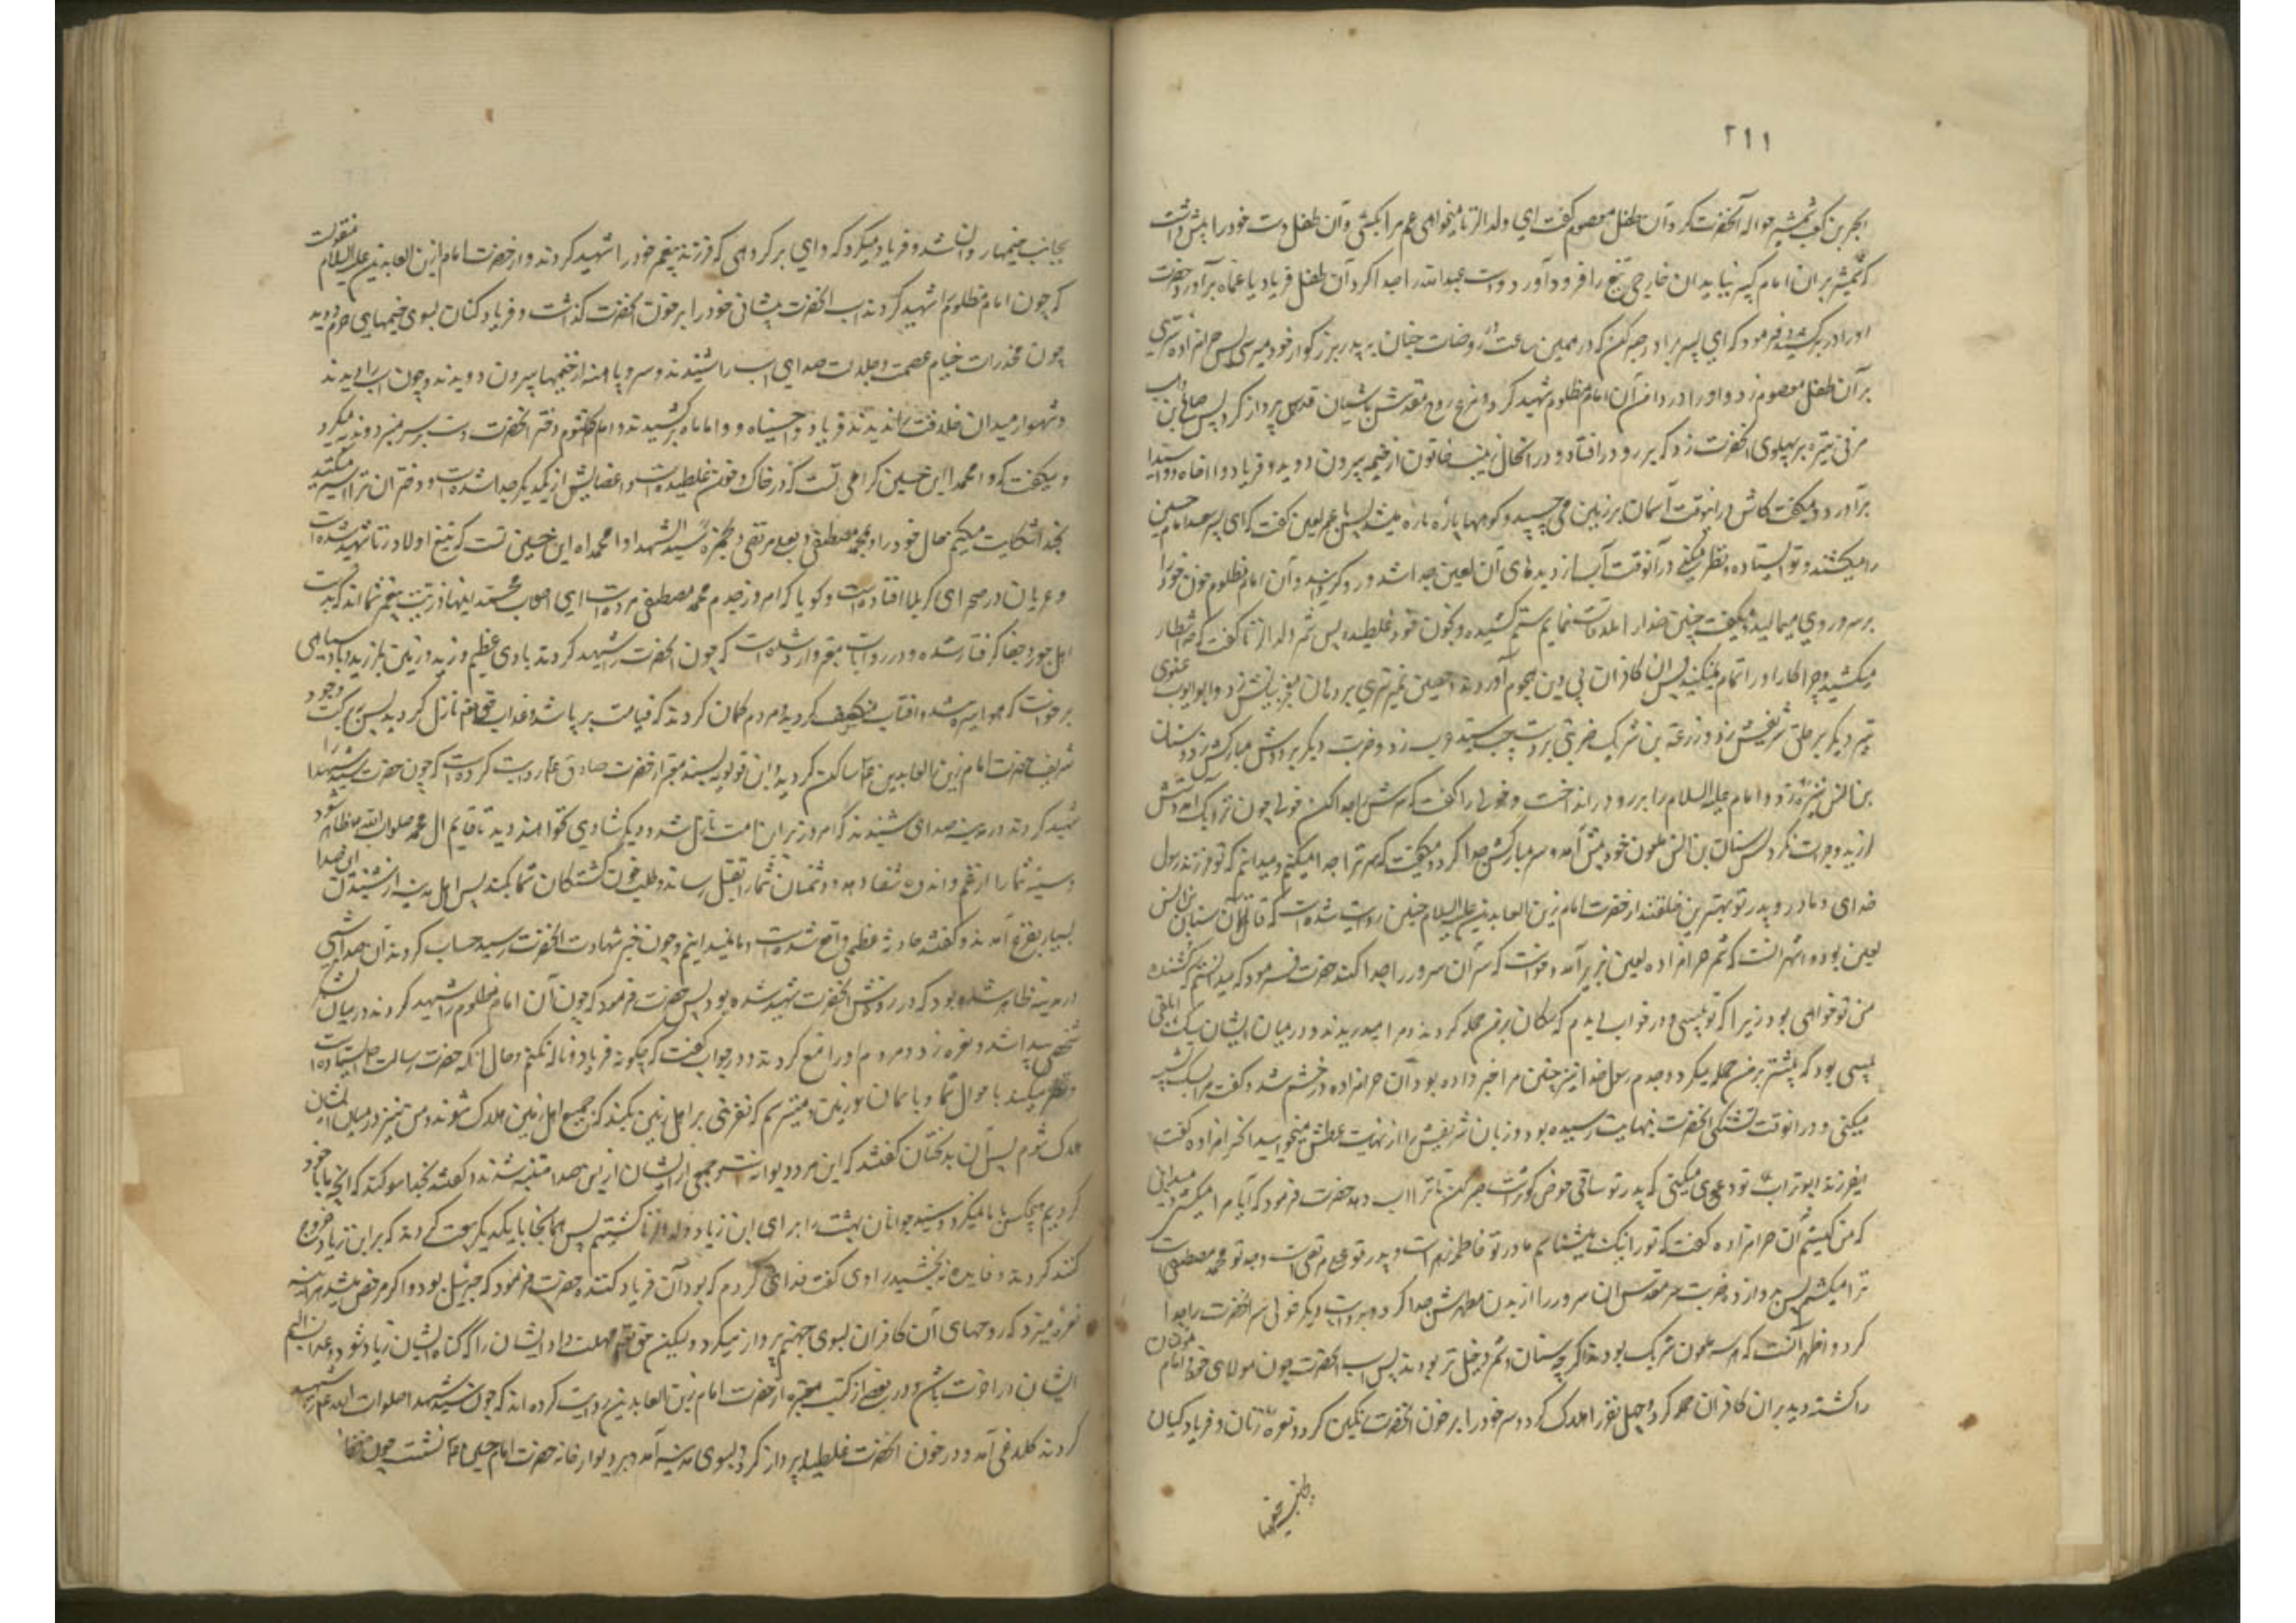 ۲۱۱
ابجر بن کعب شمشیر حواله آنحضرت کرد و آن طفل معصوم گفت ای ولد الزنا میخواهی عم مرا بکشی و آن طفل دست خود را پیش داشت
که شمشیر بران امام کبیر نیاید ان خارجی تیغ را فرود آورد و دست عبدالله را جدا کرد آن طفل فریاد یا عماه برآورد حضرت
او را در بر کشید و فرمود که ای پسر برادر صبر کن که در همین ساعت در روضات جنان به پدر بزرگوار خود میرسی پس حرامزاده تیری
بر آن طفل معصوم زد و او را در دامن آن امام مظلوم شهید کرد و مرغ روح مقدسش باشیان قدس پرواز کرد پس صالح بن وهب
مزنی نیزه بر پهلوی انحضرت زد که بر رو در افتاد و در انحال زینب خاتون از خیمه بیرون دوید و فریاد وا اخاه و وا سیداه
برآورد و میگفت کاش درانوقت آسمان بر زمین می چسپید و کوهها پاره پاره میشد پس با عمر لعین گفت که ای پسر سعد امام حسین
را میکشند و تو ایستاده و نظر میکنی درآنوقت آب از دیدهای آن لعین جدا شد و رو گردانید و آن امام مظلوم خون خود را
بر سر و روی میمالید و میگفت چنین خدا را ملاقات نمایم ستم کشیده و بخون خود غلطیده پس شمر ولد الزنا گفت که چه انتظار
میکشید و چرا کار او را تمام نمیکنید پس ان کافران بی دین هجوم آوردند حصین نمیر تیری بر دهان معجز بیانش زد و ابو ایوب غنوی
تیر دیگر بر حلق شریفش زد و زرعه بن شریک ضربتی بر دست چپ سید عرب زد و ضربت دیگر بر دوش مبارکش زد و سنان
بن انس نیزه زد و امام علیه السلام را بر رو در انداخت و خولی را گفت که سرش را جدا کن خولی چون نزدیک آمد دستش
لرزید و جرات نکرد پس سنان بن انس ملعون خود پیش آمد و سر مبارکش جدا کرد و میگفت که سر ترا جدا میکنم و میدانم که تو فرزند رسول
خدای و مادر و پدر تو بهترین خلقند از حضرت امام زین العابدین علیه السلام چنین روایت شده است که قاتل آن سنان بن انس
لعین بود و اشهر انست که شمر حرامزاده لعین نیز برآمد و خواست که سر آن سرور را جدا کند حضرت فرمود که میدانستم که کشنده
من تو خواهی بود زیرا که تو پیسی و در خواب دیدم که سگان بر من حمله کردند و مرا میدریدند و در میان ایشان یک سگ ابلقی
پیسی بود که بیشتر بر من حمله میکرد و جدم رسول خدا نیز چنین مرا خبر داده بود آن حرامزاده در خشم شد و گفت مرا بسگ تشبیه
میکنی و درانوقت تشنگی انحضرت بنهایت رسیده بود و زبان شریفش را از نهایت عطش میخوائید انحرامزاده گفت
ایفرزند ابوتراب تو دعوی میکنی که پدر تو ساقی حوض کوثرست صبر کن تا ترا اب دهد حضرت فرمود که آیا مرا میکشی و میدانی
که من کیستم آن حرامزاده گفت که تو را نیک میشناسم مادر تو فاطمه زهراست و پدر تو علی مرتضی است و جد تو محمد مصطفی است
ترا میکشم پس بدوازده ضربت سر مقدس ان سرور را از بدن مطهرش جدا کرد و بروایت دیگر خولی سر انحضرت را جدا
کرد و اظهر آنست که هر سه ملعون شریک بودند اگر چه سنان و شمر دخیل تر بودند پس اسب انحضرت چون مولای خود امام مومنان
را کشته دید بران کافران حمله کرد و چهل نفر را هلاک کرد و سر خود را بر خون انحضرت رنگین کرد و نعره زنان و فریاد کنان
بجانب خیمها
بجانب خیمها روان شد و فریاد میکرد که وای بر گروهی که فرزند پیغمبر خود را شهید کردند و از حضرت امام زین العابدین علیه السلام منقولست
که چون امام مظلوم را شهید کردند اسب انحضرت پیشانی خود را بر خون انحضرت گذاشت و فریاد کنان بسوی خیمهای حرم دوید
چون مخدرات خیام عصمت و جلالت صدای اسب را شنیدند و سر و پا برهنه از خیمها بیرون دویدند و چون اسب را دیدند
و شهسوار میدان خلافت را ندیدند فریاد وا حسیناه و وا اماماه برکشیدند و ام کلثوم دختر انحضرت دست بر سر میزد و ندبه میکرد
و میگفت که وا محمداه این حسین گرامی تست که در خاک و خون غلطیده است و اعضایش از یکدیگر جدا شده است و دختران ترا اسیر میکنند
بخدا شکایت میکنم حال خود را و بمحمد مصطفی و بعلی مرتضی و بحمزه سید الشهدا وا محمداه این حسین تست که بتیغ اولاد زنا شهید شده است
و عریان در صحرای کربلا افتاده است و گویا که امروز جدم محمد مصطفی مرده است ای اصحاب محمد اینها ذریت پیغمبر شمااند که بدست
اهل جور و جفا گرفتار شده و در روایات معتبر وارد شده است که چون انحضرت را شهید کردند بادی عظیم وزید و زمین بلرزید و باد سیاهی
برخواست که هوا تیره شد و افتاب منکسف گردید و مردم گمان کردند که قیامت بر پا شد و عذاب حق تعالی نازل گردید پس ببرکت وجود
شریف حضرت امام زین العابدین ع ساکن گردید و ابن قولویه بسند معتبر از حضرت صادق ع روایت کرده است که چون حضرت سید شهدا را
شهید کردند در مدینه صدای شنیدند که امروز بر این امت بلا نازل شد و دیگر شادی نخواهند دید تا قایم ال محمد صلوات الله علیه ظاهر شود
و سینه شما را از غم و اندوه شفا دهد و دشمنان شما را بقتل رساند و طلب خون کشتگان شما بکند پس اهل مدینه از شنیدن این صدا
بسیار بفزع آمدند و گفتند حادثه عظمی واقع شده است و ما نمیدانیم و چون خبر شهادت انحضرت رسید حساب کردند آن صدا شبی
در مدینه ظاهر شده بود که در روزش انحضرت شهید شده بود پس حضرت فرمود که چون آن امام مظلوم را شهید کردند در میان لشکر
شخصی پیدا شد و نعره زد و مردم او را منع کردند و در جواب گفت که چگونه فریاد و ناله نکنم و حال انکه حضرت رسالت ص ایستاده است
و نظر میکند باحوال شما و باسمان و زمین و میترسم که نفرینی بر اهل زمین بکند که جمیع اهل زمین هلاک شوند و من نیز در میان ایشان
هلاک شوم پس آن بدبختان گفتند که این مرد دیوانه است و جمعی از ایشان از این صدا متنبه شدند و گفتند بخدا سوگند که انچه ما با خود
کردیم هیچکس با ما نمیکرد و سید جوانان بهشت را برای ابن زیاد ولد الزنا کشتیم پس همانجا با یکدیگر بیعت کردند که بر ابن زیاد خروج
کنند کردند و فایده نبخشید راوی گفت فدای تو گردم که بود آن فریاد کننده حضرت فرمود که جبرئیل بود و اگر مرخص میشد هر اینه
نعره میزد که روحهای آن کافران بسوی جهنم پرواز میکرد و لیکن حق تعالی مهلت داد ایشان را که گناه ایشان زیاد شود و عذاب الیم
ایشان در اخرت باشد و در بعضی از کتب معتبره از حضرت امام زین العابدین روایت کرده اند که چون سید شهدا صلوات الله علیه را شهید
کردند کلاغی آمد و در خون انحضرت غلطید و پرواز کرد و بسوی مدینه آمد و بر دیوار خانه حضرت امام حسین ع نشست چون